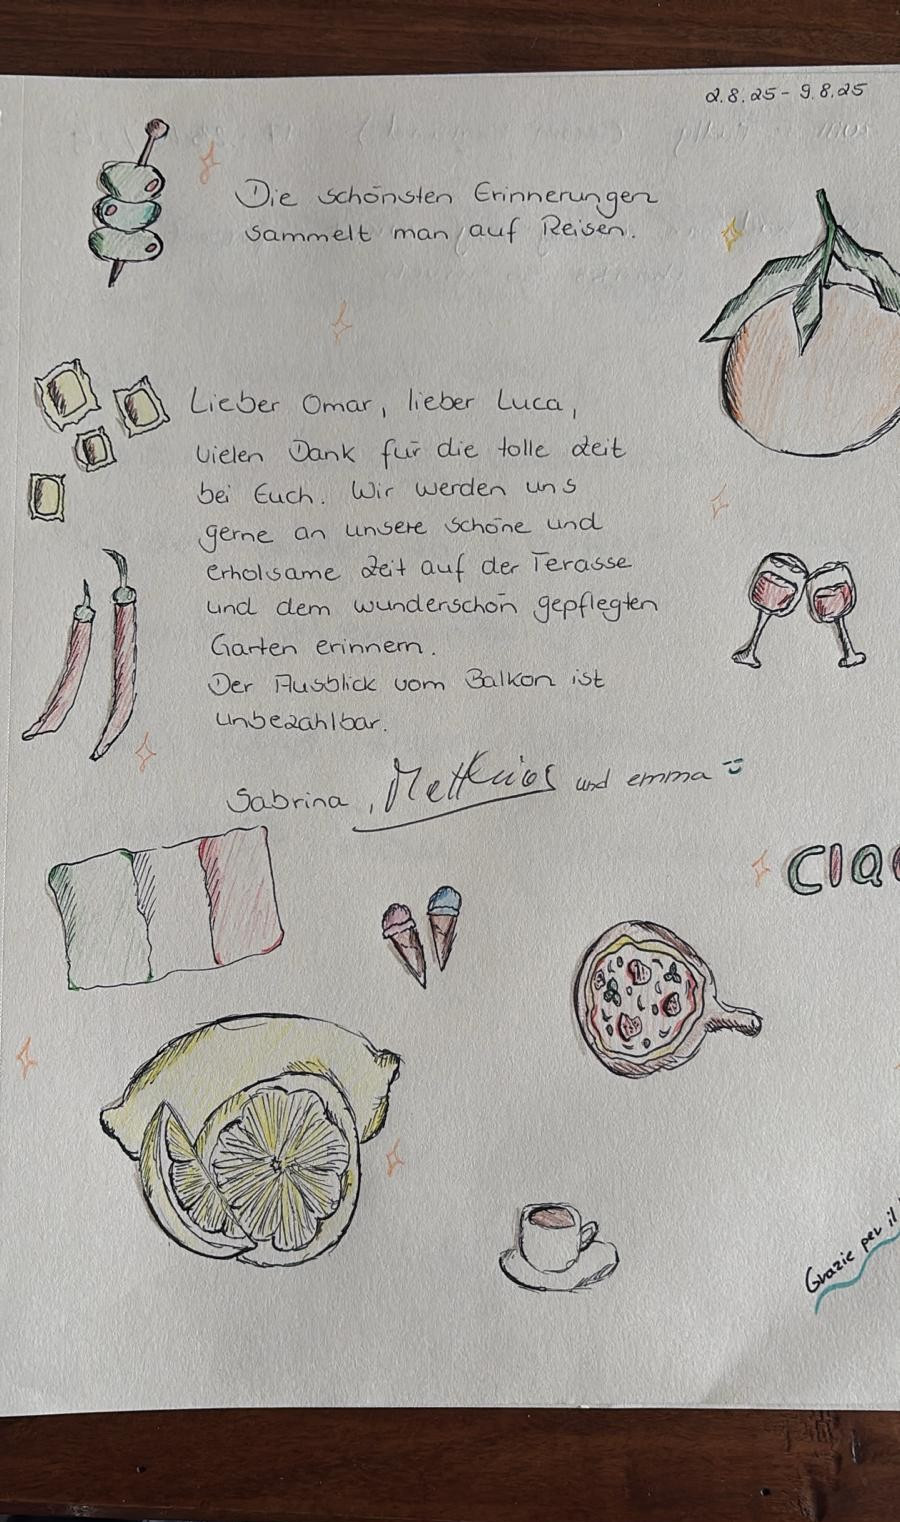 2.8.25 - 9.8.25
Die schönsten Erinnerungen
sammelt man auf Reisen.
Lieber Omar, lieber Luca,
vielen Dank für die tolle Zeit
bei Euch. Wir werden uns
gerne an unsere schöne und
erholsame Zeit auf der Terasse
und dem wunderschön gepflegten
Garten erinnern.
Der Ausblick vom Balkon ist
unbezahlbar.
Sabrina, und emma
Grazie per il